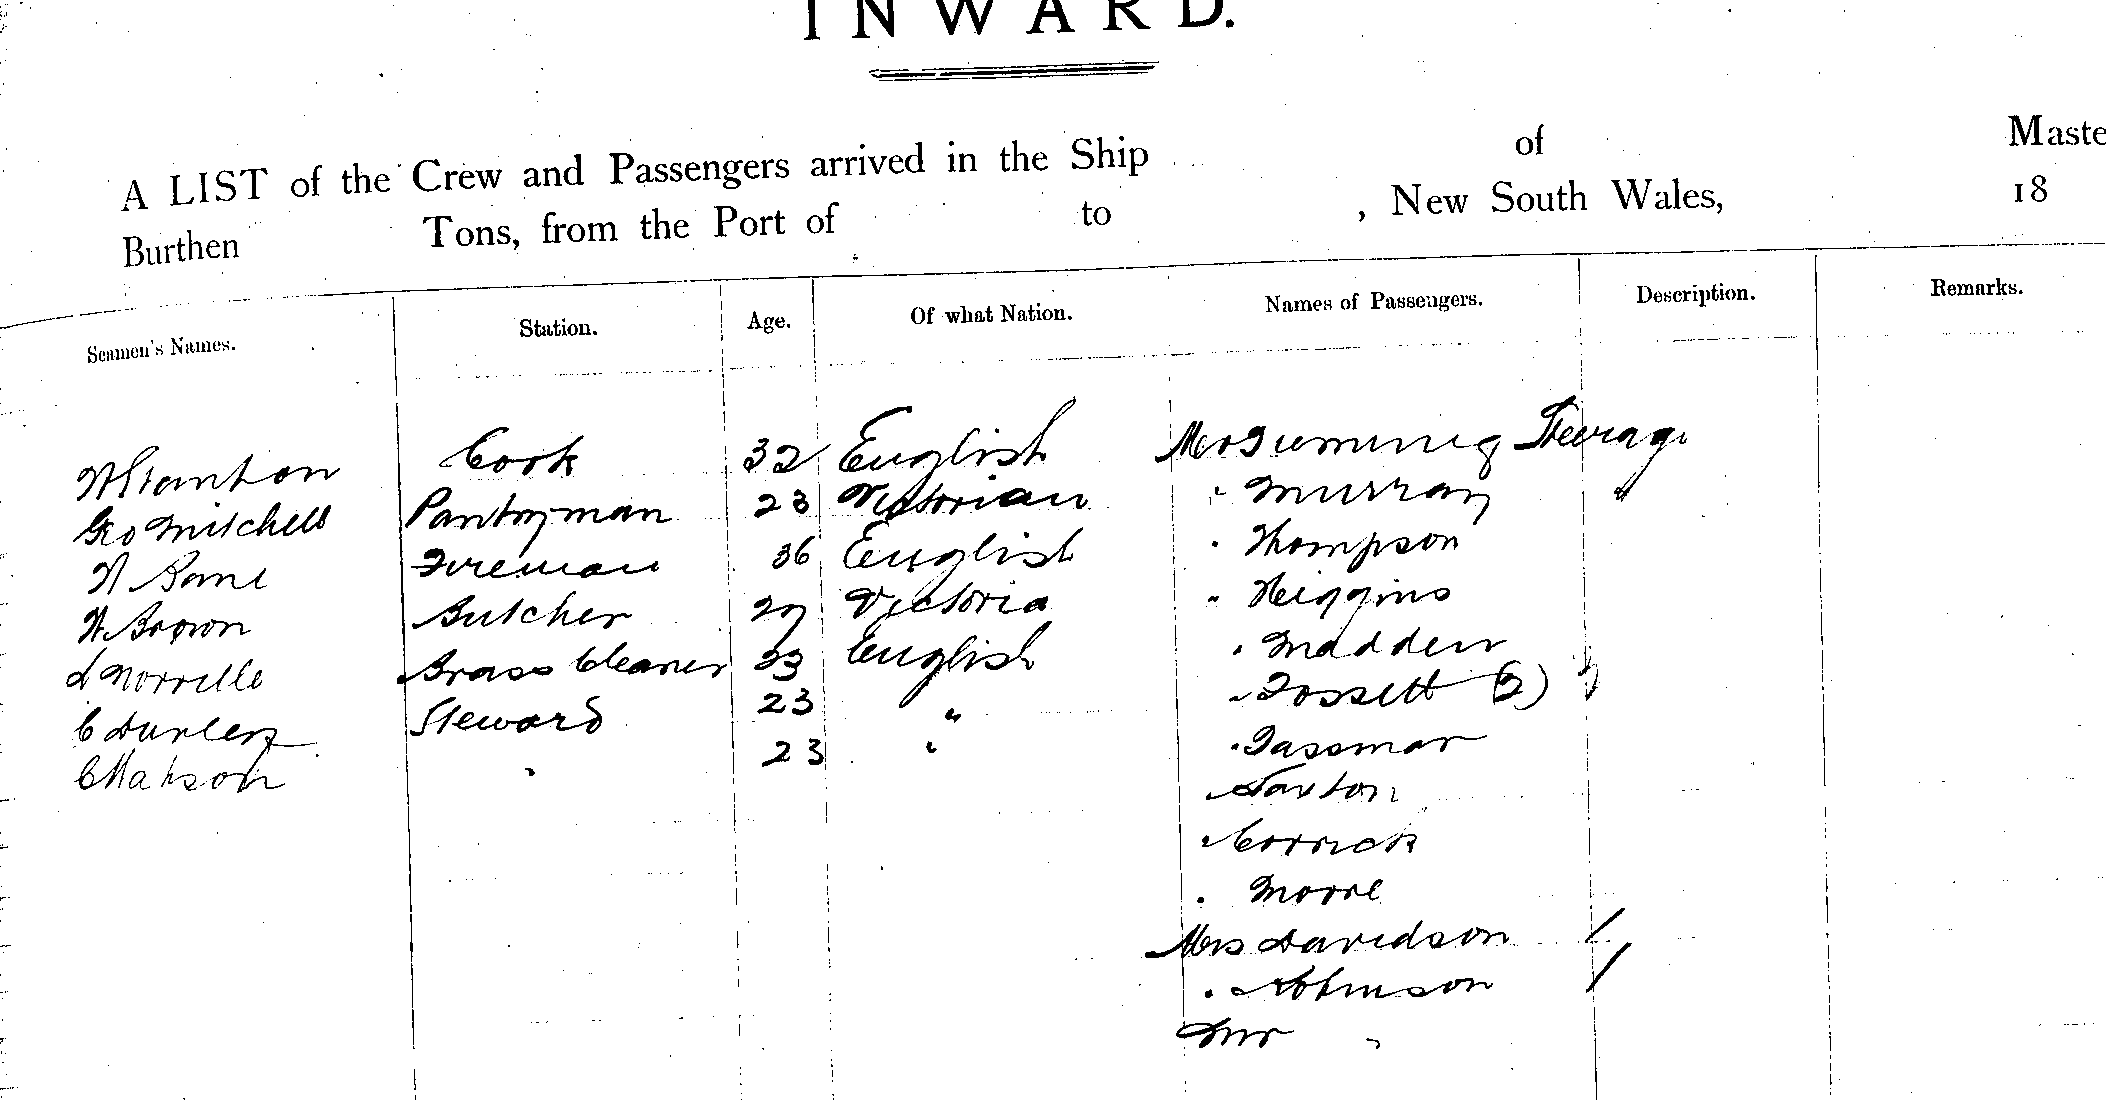 INWARD.
A LIST of the Crew and Passengers arrived in the Ship of Maste
Burthen Tons, from the Port of to , New South Wales, 18
Seamen's Names. Station. Age. Of what Nation. Names of Passengers. Description. Remarks.
W Stanton Cook 32 English Mrs Steerage
Geo Mitchell Pantryman 23 Victorian " Murray "
W Fireman 36 English " Thompson
W Brown Butcher 29 Victoria " Higgins
Brass Cleaner 33 English " Madden
C Steward 23 " " Fossett (2) "
C " 23 " "
" Saxton
"
" Moore
Mrs Davidson /
" Robinson /
Mr "